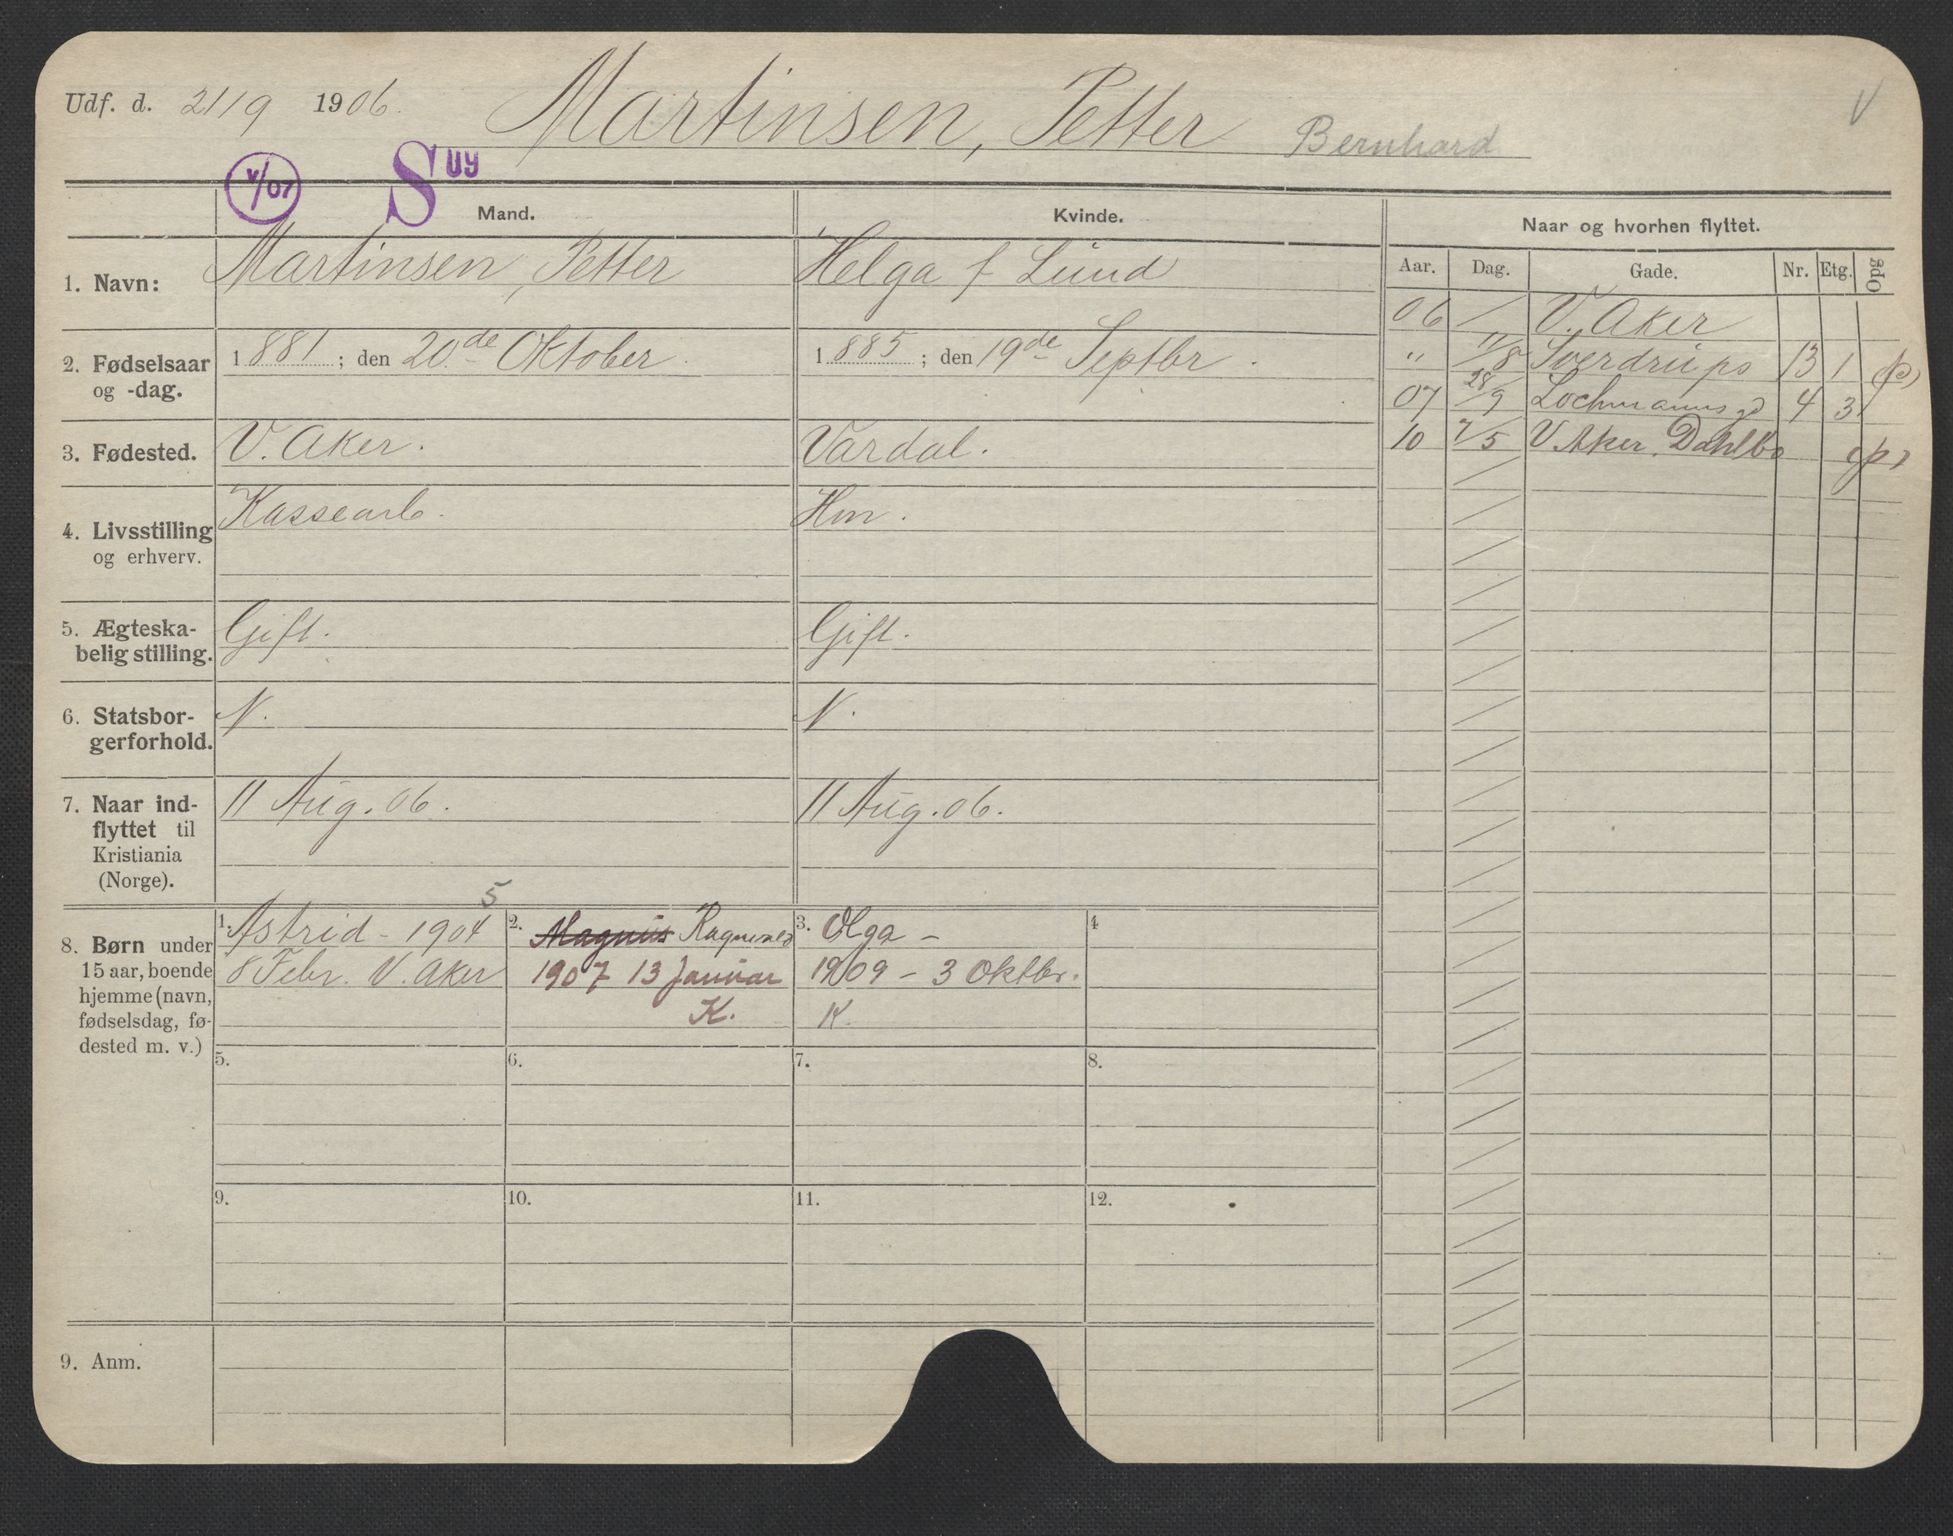 Udf. d. 21/9 1906. Martinsen, Petter Bernhard V
V/07 S UY
Mand. Kvinde. Naar og hvorhen flyttet.
Aar. Dag. Gade. Nr. Etg. Opg
1. Navn: Martinsen, Petter Helga f Lund
06 V. Aker
2. Fødselsaar og -dag. 1881; den 20de Oktober. 1885; den 19de Septbr.
" 11/8 Sverdrups 13 1 (p)
07 28/9 Lochmanns gd 4 3
10 7/5 V Aker. Dahlbo (p)
3. Fødested. V. Aker. Vardal.
4. Livsstilling og erhverv. Kassearb. Hm.
5. Ægteska-
belig stilling. Gift. Gift.
6. Statsbor-
gerforhold. N. N.
7. Naar ind-
flyttet til
Kristiania
(Norge). 11 Aug. 06. 11 Aug. 06.
8. Børn under
15 aar, boende
hjemme (navn,
fødselsdag, fø-
dested m. v.)
1. Astrid - 1904 5
8 Febr. V. Aker
2. Magnus Ragnvald
1907 13 Januar
K.
3. Olga -
1909 - 3 Oktbr.
K.
4
5. 6. 7. 8.
9. 10. 11. 12.
9. Anm.